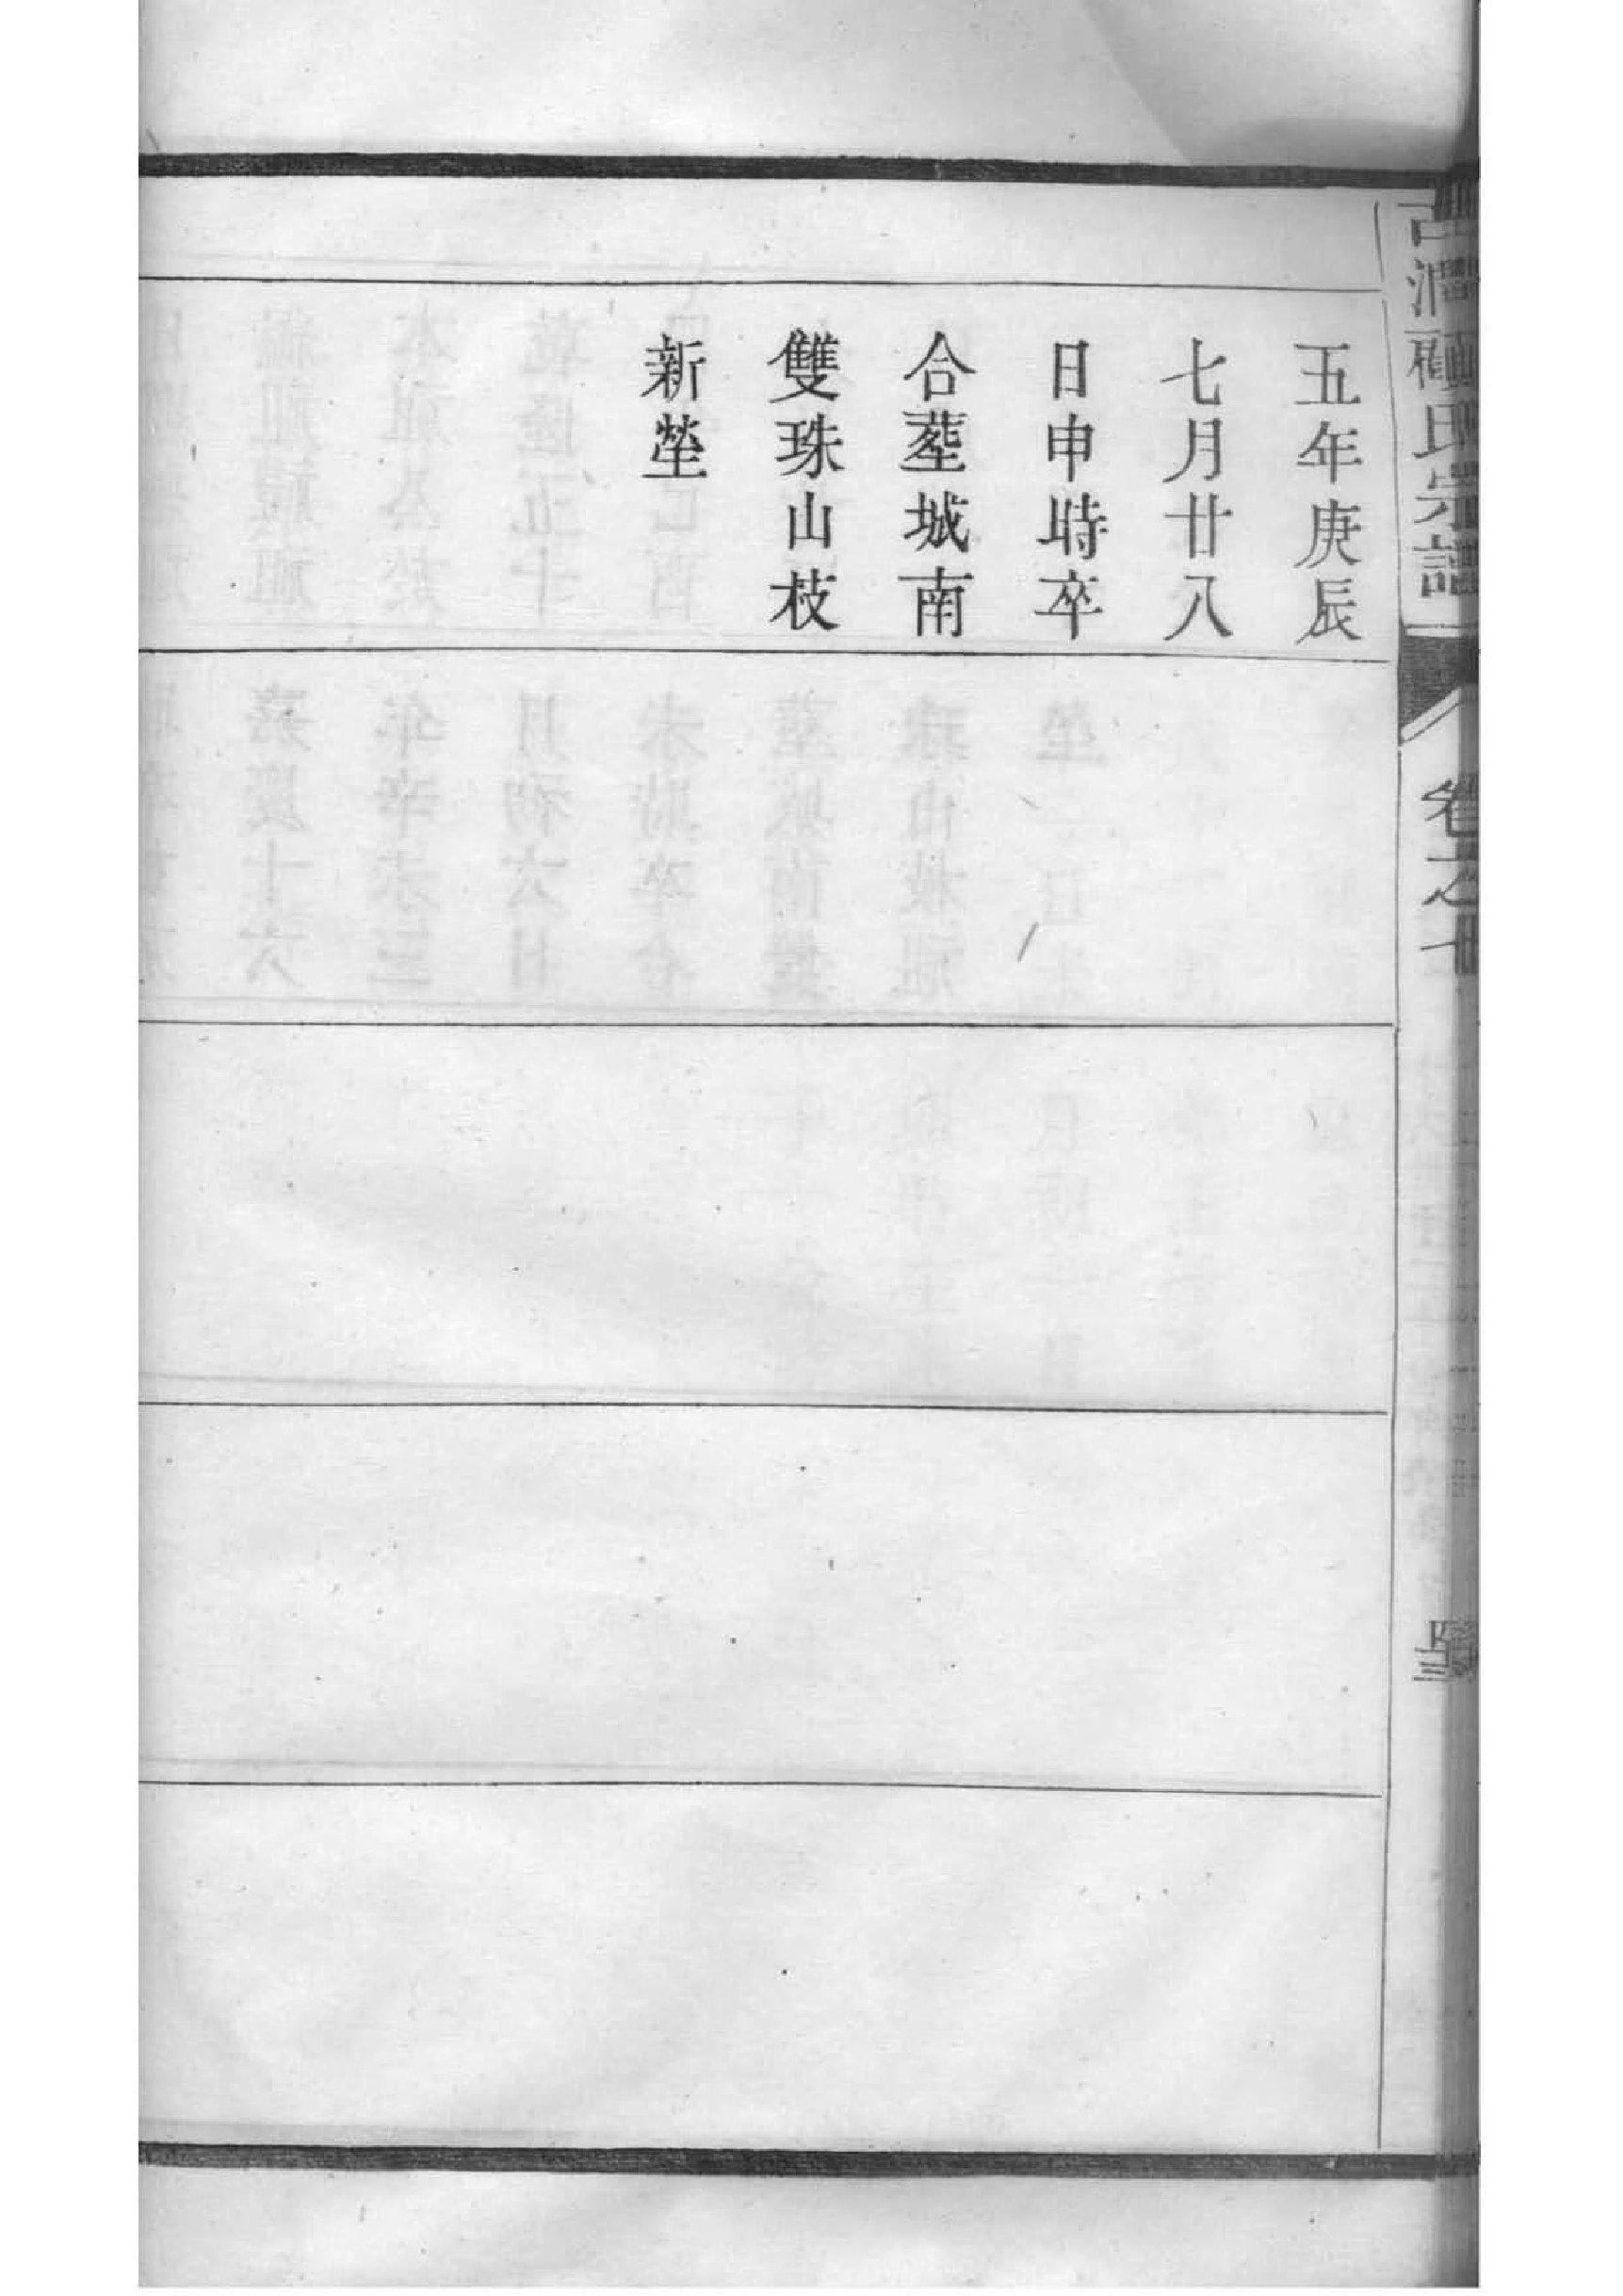 五年庚辰
七月廿八
日申時卒
合塟城南
雙珠山枝
新塋
氏宗譜
卷之